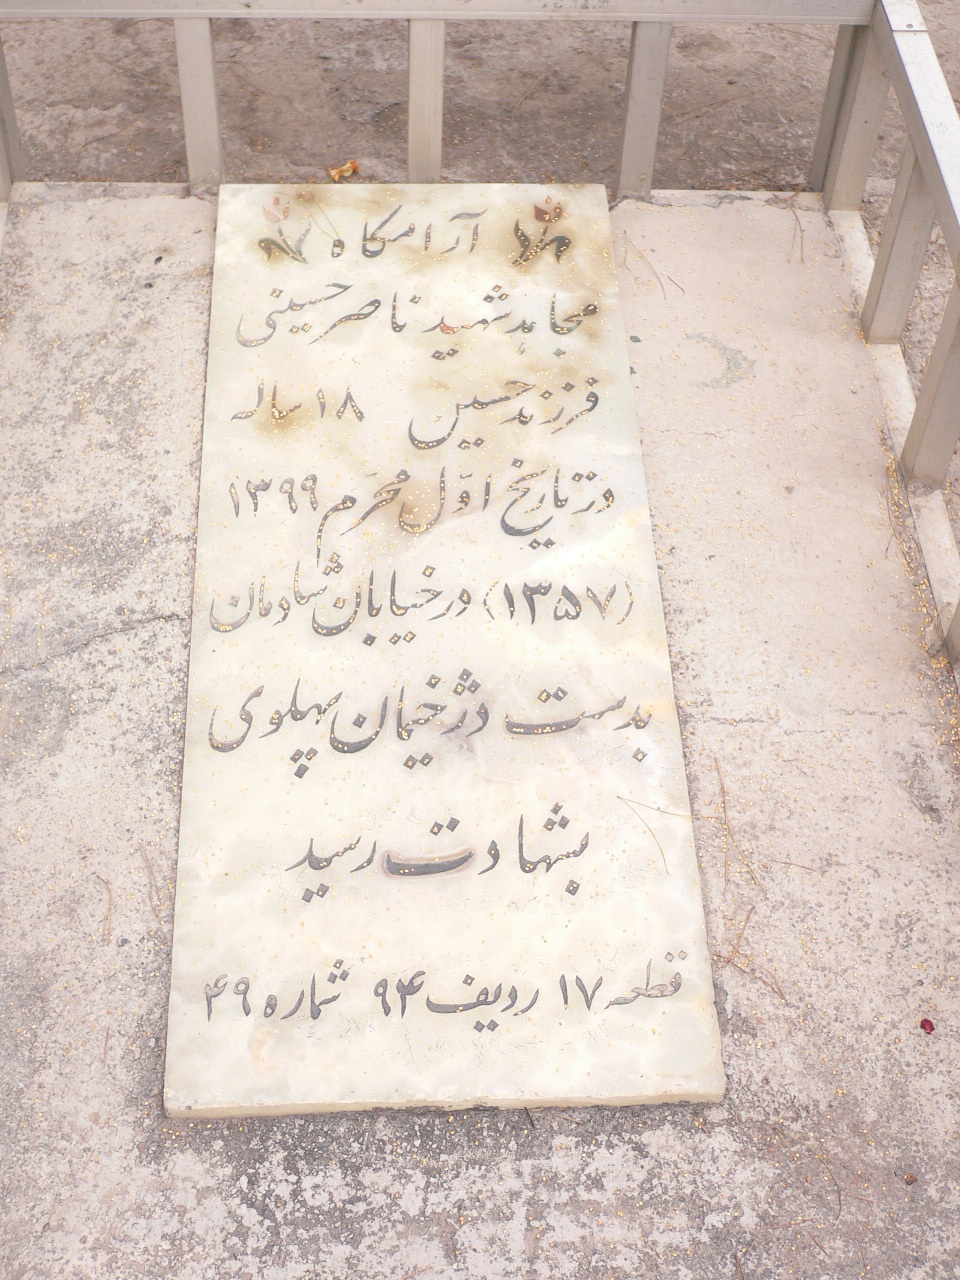 آرامگاه
مجاهد شهید ناصر حسینی
فرزند حسین ۱۸ ساله
در تاریخ اوّل محرّم ۱۳۹۹
(۱۳۵۷) در خیابان شادمان
بدست دژخیمان پهلوی
بشهادت رسید
قطعه ۱۷ ردیف ۹۴ شماره ۴۹